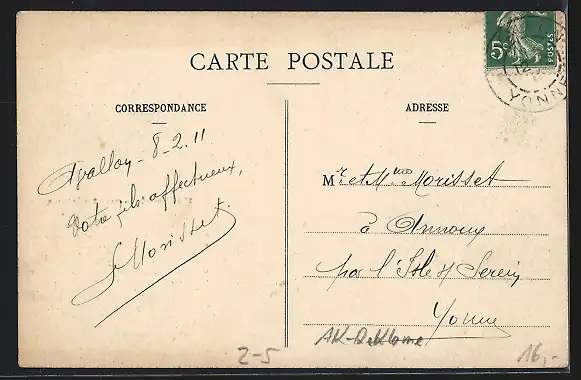 CARTE POSTALE
5c
POSTES
YONNE
CORRESPONDANCE
Avallon - 8-2.11
Votre fils affectueux,
Morisset.
ADRESSE
Mr et Mme Morisset
à Annoux
par l'Isle s/ Serein
Yonne
AK-Reklame
2-5
16,-